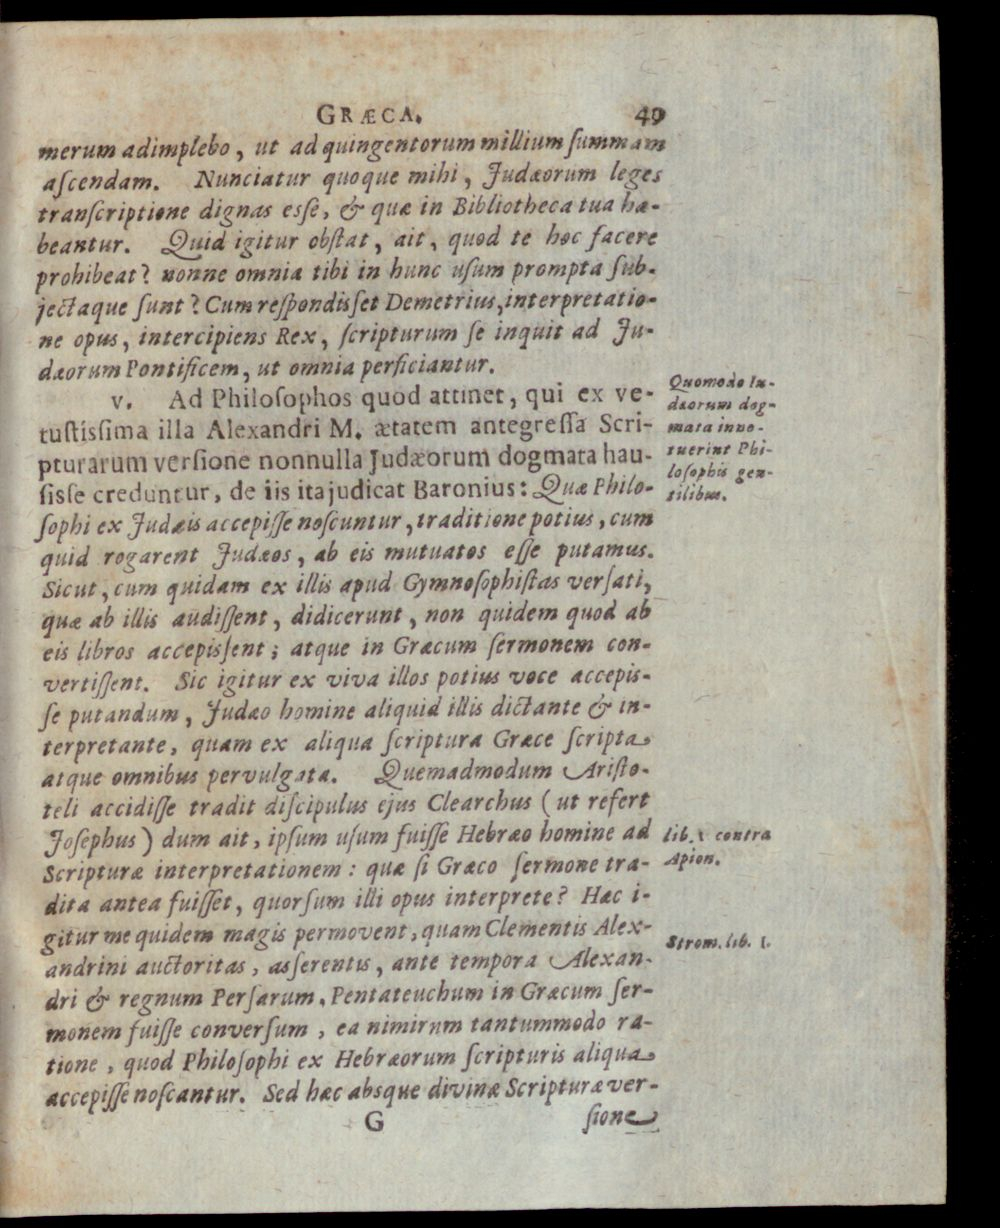 GRÆCA. 49
merum adimplebo, ut ad quingentorum millium ſummam
aſcendam. Nunciatur quoque mihi, Judæorum leges
tranſcriptione dignas eſſe, & quæ in Bibliotheca tua ha-
beantur. Quid igitur obſtat, ait, quod te hoc facere
prohibeat? nonne omnia tibi in hunc uſum prompta ſub-
jectaque ſunt? Cum reſpondiſſet Demetrius, interpretatio-
ne opus, intercipiens Rex, ſcripturum ſe inquit ad Ju-
dæorum Pontificem, ut omnia perficiantur.
v. Ad Philoſophos quod attinet, qui ex ve-
tuſtiſſima illa Alexandri M. ætatem antegreſſa Scri-
pturarum verſione nonnulla Judæorum dogmata hau-
ſiſſe creduntur, de iis ita judicat Baronius: Quæ Philo-
ſophi ex Judæis accepiſſe noſcuntur, traditione potius, cum
quid rogarent Judæos, ab eis mutuatos eſſe putamus.
Sicut, cum quidam ex illis apud Gymnoſophiſtas verſati,
quæ ab illis audiſſent, didicerunt, non quidem quod ab
eis libros accepiſſent; atque in Græcum ſermonem con-
vertiſſent. Sic igitur ex viva illos potius voce accepiſ-
ſe putandum, Judæo homine aliquid illis dictante & in-
terpretante, quam ex aliqua ſcriptura Græce ſcripta
atque omnibus pervulgata. Quemadmodum Ariſto-
teli accidiſſe tradit diſcipulus ejus Clearchus (ut refert
Joſephus) dum ait, ipſum uſum fuiſſe Hebræo homine ad
Scripturæ interpretationem: quæ ſi Græco ſermone tra-
dita antea fuiſſet, quorſum illi opus interprete? Hæc i-
gitur me quidem magis permovent, quam Clementis Alex-
andrini auctoritas, aſſerentis, ante tempora Alexan-
dri & regnum Perſarum, Pentateuchum in Græcum ſer-
monem fuiſſe converſum, ea nimirum tantummodo ra-
tione, quod Philoſophi ex Hebræorum ſcripturis aliqua
accepiſſe noſcantur. Sed hæc absque divinæ Scripturæ ver-
G ſione
Quomodo Iu-
dæorum dog-
mata inno-
tuerint Phi-
loſophis gen-
tilibus.
lib. 1 contra
Apion.
Strom. lib. 1.